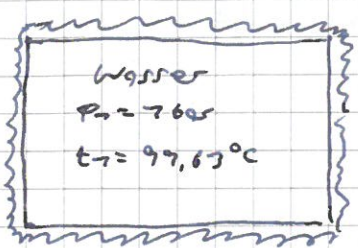 Wasser
p₁ = 1 bar
t₁ = 99,63°C